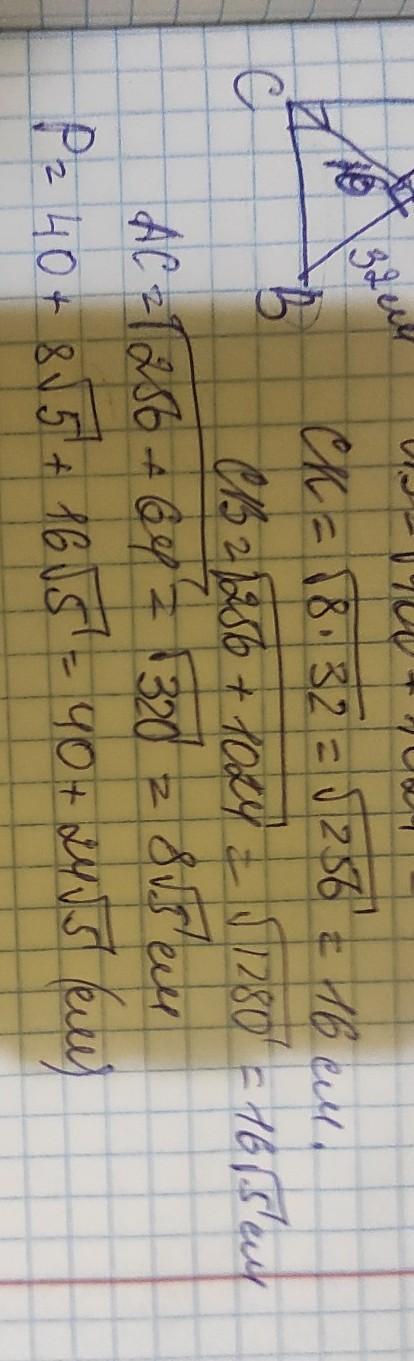 C
B
32 см
CK = √8·32 = √256 = 16 см.
CB = √256 + 1024 = √1280 = 16√5 см
AC = √256 + 64 = √320 = 8√5 см
P = 40 + 8√5 + 16√5 = 40 + 24√5 (см)